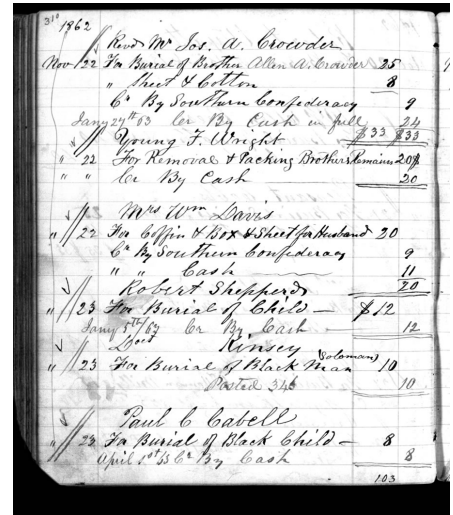 310
1862
Revd Mr Jos. A. Crowder
Nov 22 For Burial of Brother Allen A. Crowder 25
" Sheet & Cotton 8
Cr By Southern Confederacy 9
Jany 27th 63 Cr By Cash in full 24
$33 $33
Young F. Wright
" 22 For Removal & Packing Brothers Remains 20
" " Cr By Cash 20
Mrs Wm Davis
" 22 For Coffin & Box & Sheet for Husband 20
Cr By Southern Confederacy 9
" " Cash 11
20
Robert Shepperd
" 23 For Burial of Child — $12
Jany 5th 63 Cr By Cash — 12
Kinsey
" 23 For Burial of Black Man (Soloman) 10
Posted 346 10
Paul C Cabell
" 23 For Burial of Black Child — 8
April 1st 63 Cr By Cash 8
103